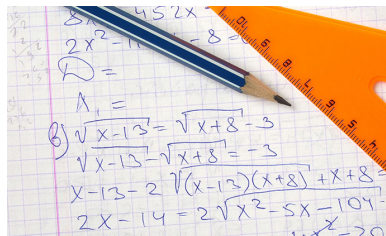 8x 452x
2x² - 8 =
D =
A₁ =
в) √x-13 = √x+8 - 3
√x-13 - √x+8 = -3
x-13-2 √(x-13)(x+8) + x+8 =
2x-14 = 2√x²-5x-104 -